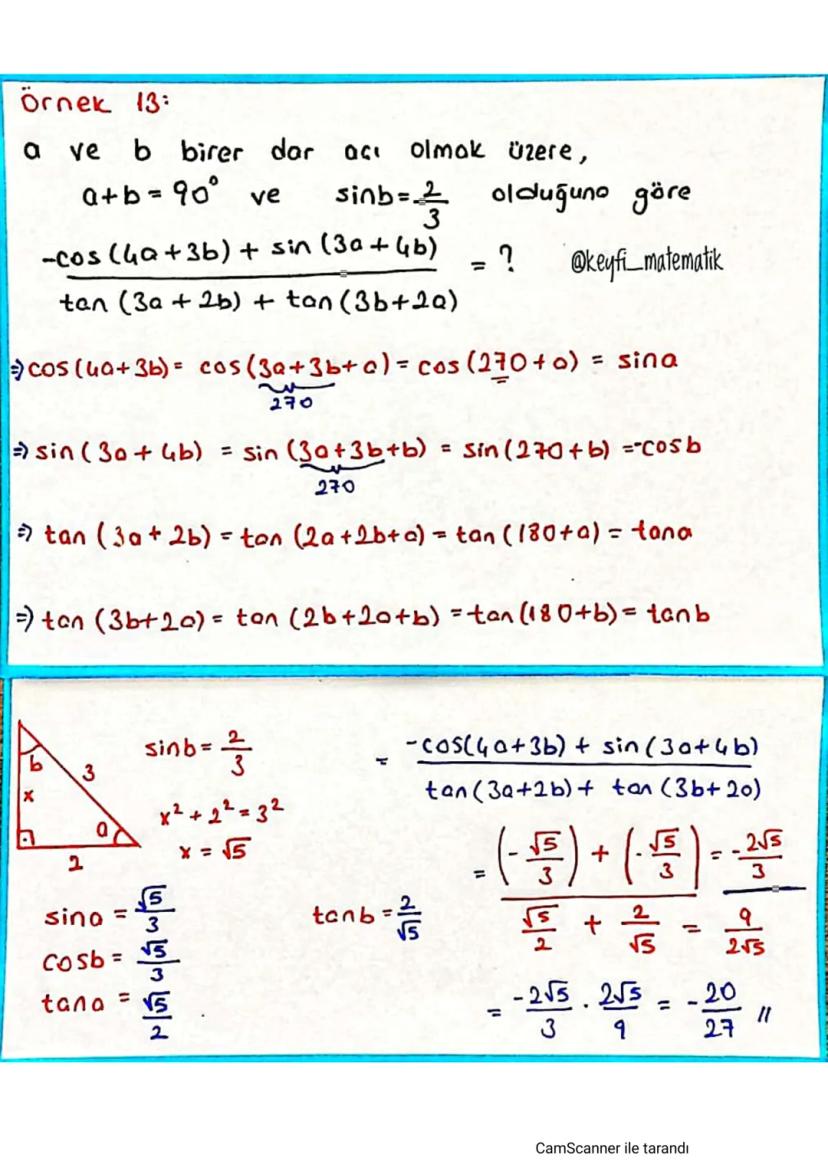 Örnek 13:
a ve b birer dar açı olmak üzere,
a+b=90° ve sinb=2/3 olduğuna göre
-cos(4a+3b) + sin(3a+4b) / tan(3a+2b) + tan(3b+2a) = ? @keyfi_matematik
⇒ cos(4a+3b) = cos(3a+3b+a) = cos(270+a) = sina
270
⇒ sin(3a+4b) = sin(3a+3b+b) = sin(270+b) = -cosb
270
⇒ tan(3a+2b) = tan(2a+2b+a) = tan(180+a) = tana
⇒ tan(3b+2a) = tan(2b+2a+b) = tan(180+b) = tanb
b 3 x a 2
sinb = 2/3
x² + 2² = 3²
x = √5
sina = √5/3
cosb = √5/3
tana = √5/2
tanb = 2/√5
= -cos(4a+3b) + sin(3a+4b) / tan(3a+2b) + tan(3b+2a)
= (-√5/3) + (-√5/3) = -2√5/3
√5/2 + 2/√5 = 9/2√5
= -2√5/3 . 2√5/9 = -20/27 //
CamScanner ile tarandı